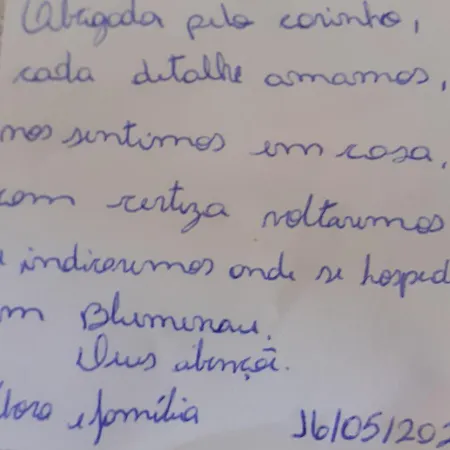 Obrigada pelo carinho,
cada detalhe amamos,
nos sentimos em casa,
com certeza voltaremos
e indicaremos onde se hosped
em Blumenau.
Deus abençõe.
e família 16/05/202